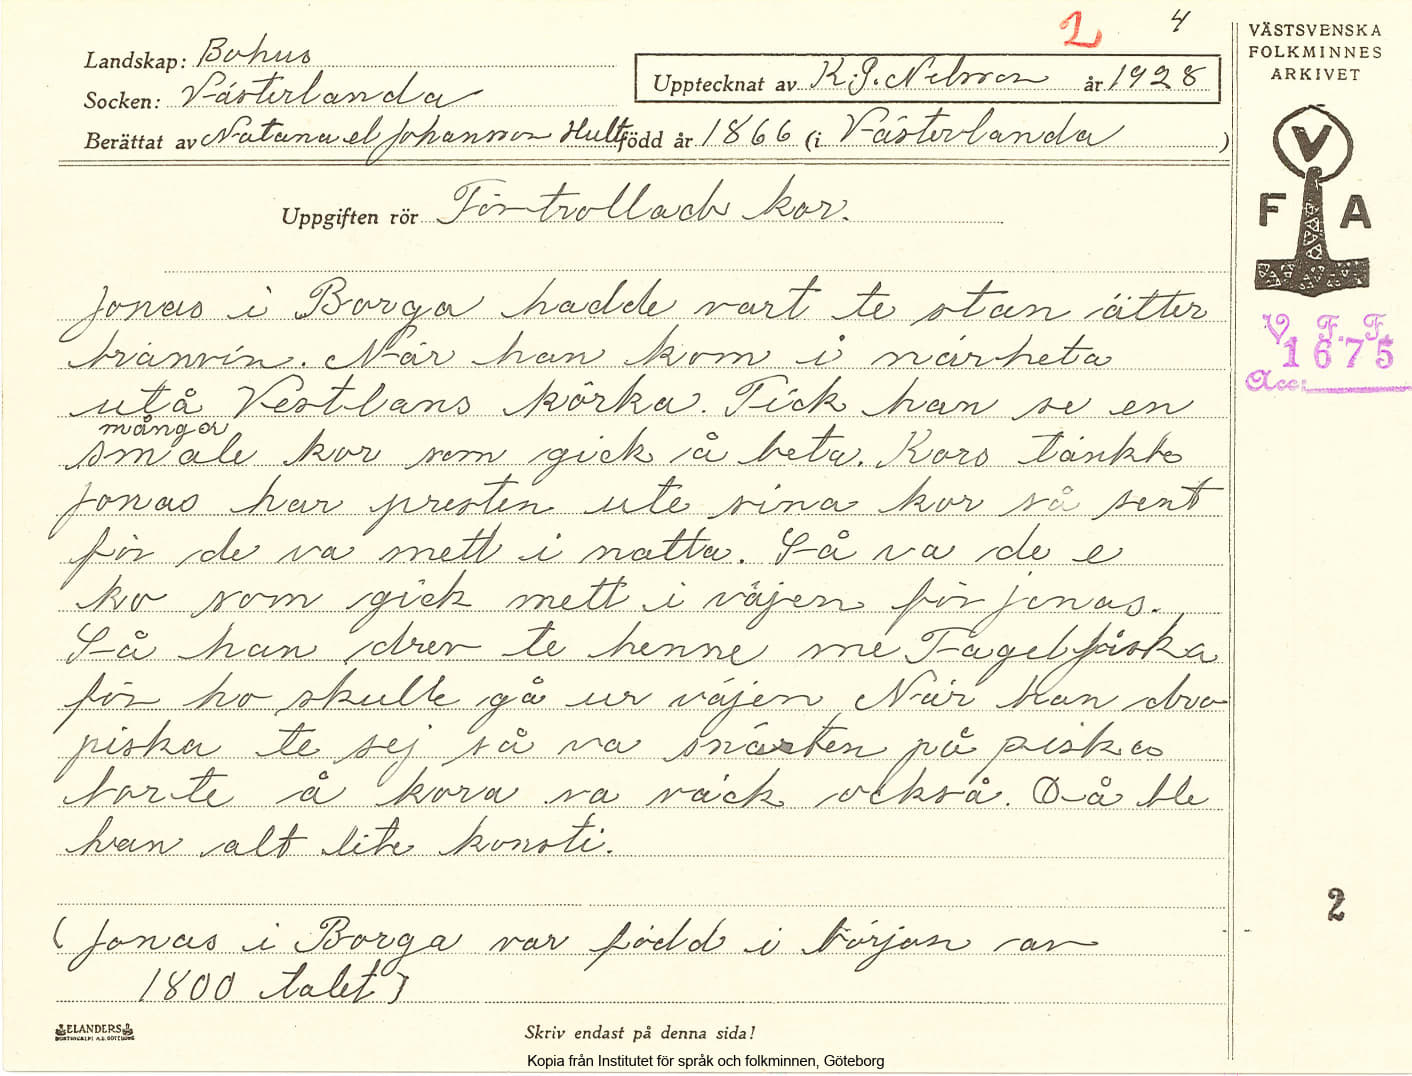 2 4
Landskap: Bohus
Socken: Västerlanda
Upptecknat av K.J. Nelsson år 1928
Berättat av Natanael Johansson Hult född år 1866 (i Västerlanda )
Uppgiften rör Förtrollade kor.
Jonas i Borga hadde vart te stan ätter
brännvin. När han kom i närheta
utå Vestlans körka. Fick han se en
många
smale kor som gick å beta. Kors tänkte
Jonas har presten ute sina kor så sent
för de va mett i natta. Så va de e
ko som gick mett i väjen för Jonas.
Så han drev te henne me Fagelpiska
för ho skulle gå ur väjen När han dro
piska te sej så va snärten på piska
borte å kora va väck också. Då ble
han alt lite konsti.
(Jonas i Borga var född i början av
1800 talet)
ELANDERS
Skriv endast på denna sida!
Kopia från Institutet för språk och folkminnen, Göteborg
VÄSTSVENSKA
FOLKMINNES
ARKIVET
V
F A
V. F. F.
1675
Acc:
2